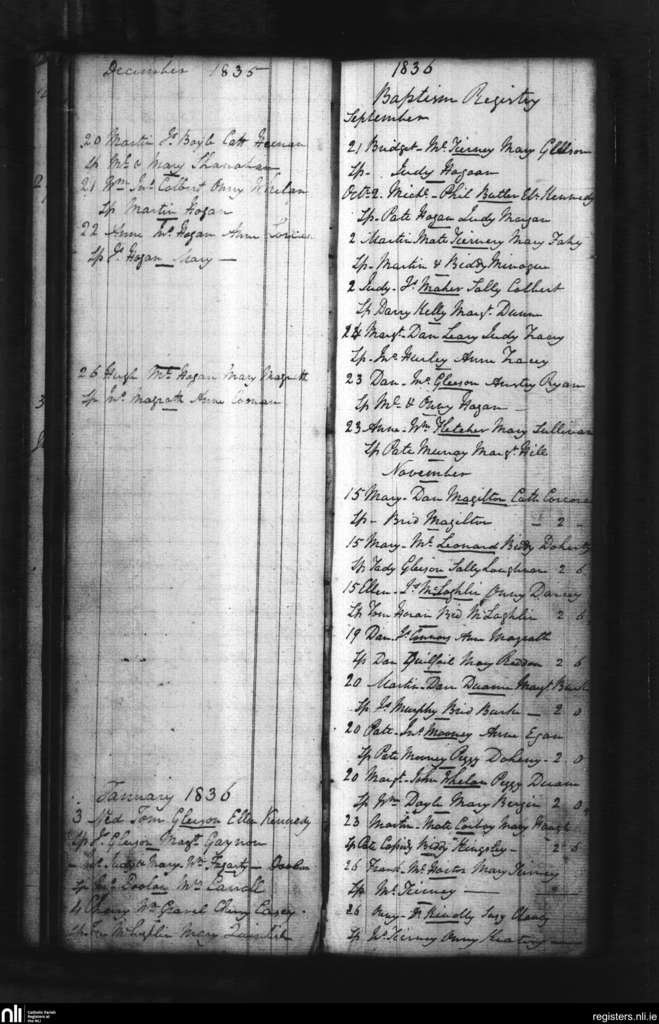 December 1835
20 Martin Js. Boyle Cath Heenan
Sp Ml. & Mary Shanahan
21 Wm. Jno. Colbert Onny Whelan
Sp Martin Hogan
22 Anne Ml. Hogan Anne
Sp Js. Hogan Mary —
26 Hugh Mt. Hogan Mary Magrath
Sp Ml. Magrath Anne
January 1836
3 Ned Tom Gleeson Ellen Kennedy
Sp J. Gleeson Margt. Gaynor
Mary Wm. Fogarty Doolan
Sp Doolan Carroll
4 Wm. Casey
Sp Mary
1836
Baptism Registry
September
21 Bridget - Ml. Tierney Mary Gleeson
Sp - Judy Hogan
Octr. 2. Michl - Phil Butler W. Kennedy
Sp - Pate Hogan Judy Mangan
2 Martin Mate Tierney Mary Fahy
Sp - Martin & Biddy Minogue
2 Judy - Js. Maher Sally Colbert
Sp Darry Kelly Margt. Dunne
24 Margt. Dan Leary Judy Tracey
Sp - Jno. Hurley Anne Tracey
23 Dan - Jno. Gleeson Ryan
Sp Ml. & Onny Hogan —
23 Anne - Wm. Fletcher Mary Sullivan
Sp Pate Murray Margt. Hill
November
15 Mary - Dan Magilton Cath Corcoran
Sp - Brid Magilton — 2 —
15 Mary - Ml. Leonard Biddy Doherty
Sp Tady Gleeson Sally Loughnan 2 6
15 Ellen - Js. McLoghlin Onny Darcey
Sp Tom Horan Brid McLoghlin 2 6
19 Dan Js. Connors Ann Magrath
Sp Dan Guilfoil Mary Reddan 2 6
20 Martin - Dan Duane Margt Burk
Sp Js. Murphy Brid Burk — 2 0
20 Pate - Jno. Mooney Anne Egan
Sp Pate Mooney Peggy Doheny - 2 0
20 Margt - John Whelan Peggy Duane
Sp Wm Doyle Mary Bergin 2 0
23 Martin - Mate Conboy Mary Haugh
Sp Pate Biddy Kingsley - 2 6
26 Frank - Ml. Mary Tierney
Sp Ml. Tierney —
26 Onny - Suzy
Sp Jno. Tierney Onny Keating
nli
Catholic Parish
Registers at
the NLI
registers.nli.ie